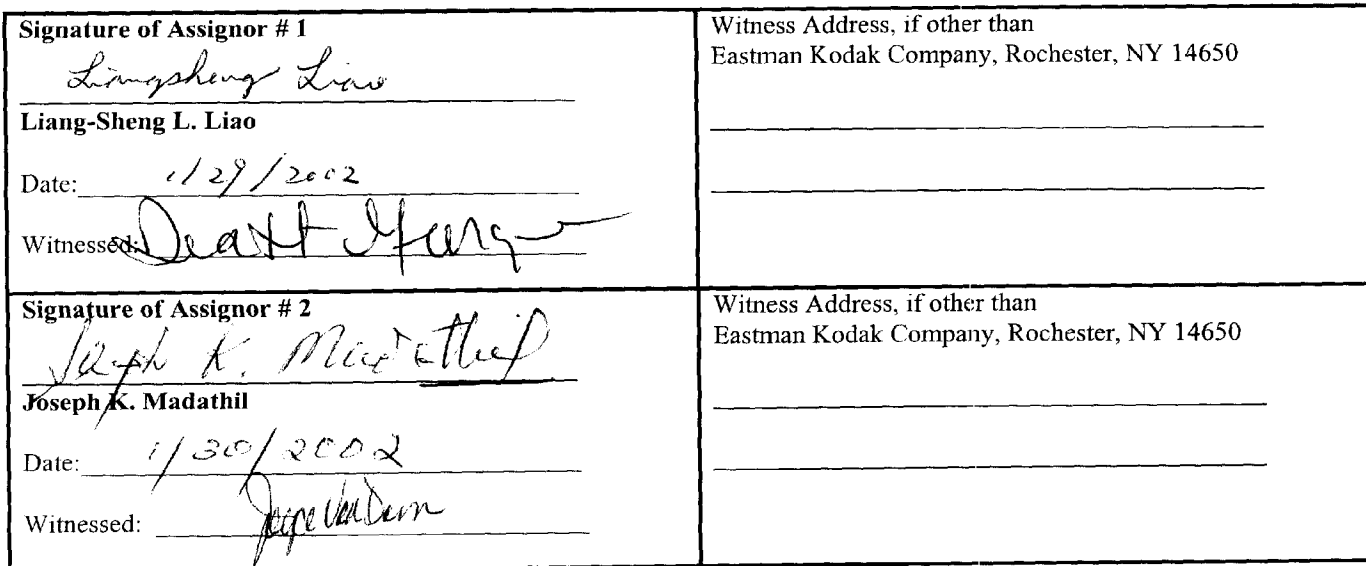 Signature of Assignor # 1
Liangsheng Liao
Liang-Sheng L. Liao
Date: 1/29/2002
Witnessed:
Witness Address, if other than
Eastman Kodak Company, Rochester, NY 14650
Signature of Assignor # 2
Joseph K. Madathil
Joseph K. Madathil
Date: 1/30/2002
Witnessed:
Witness Address, if other than
Eastman Kodak Company, Rochester, NY 14650